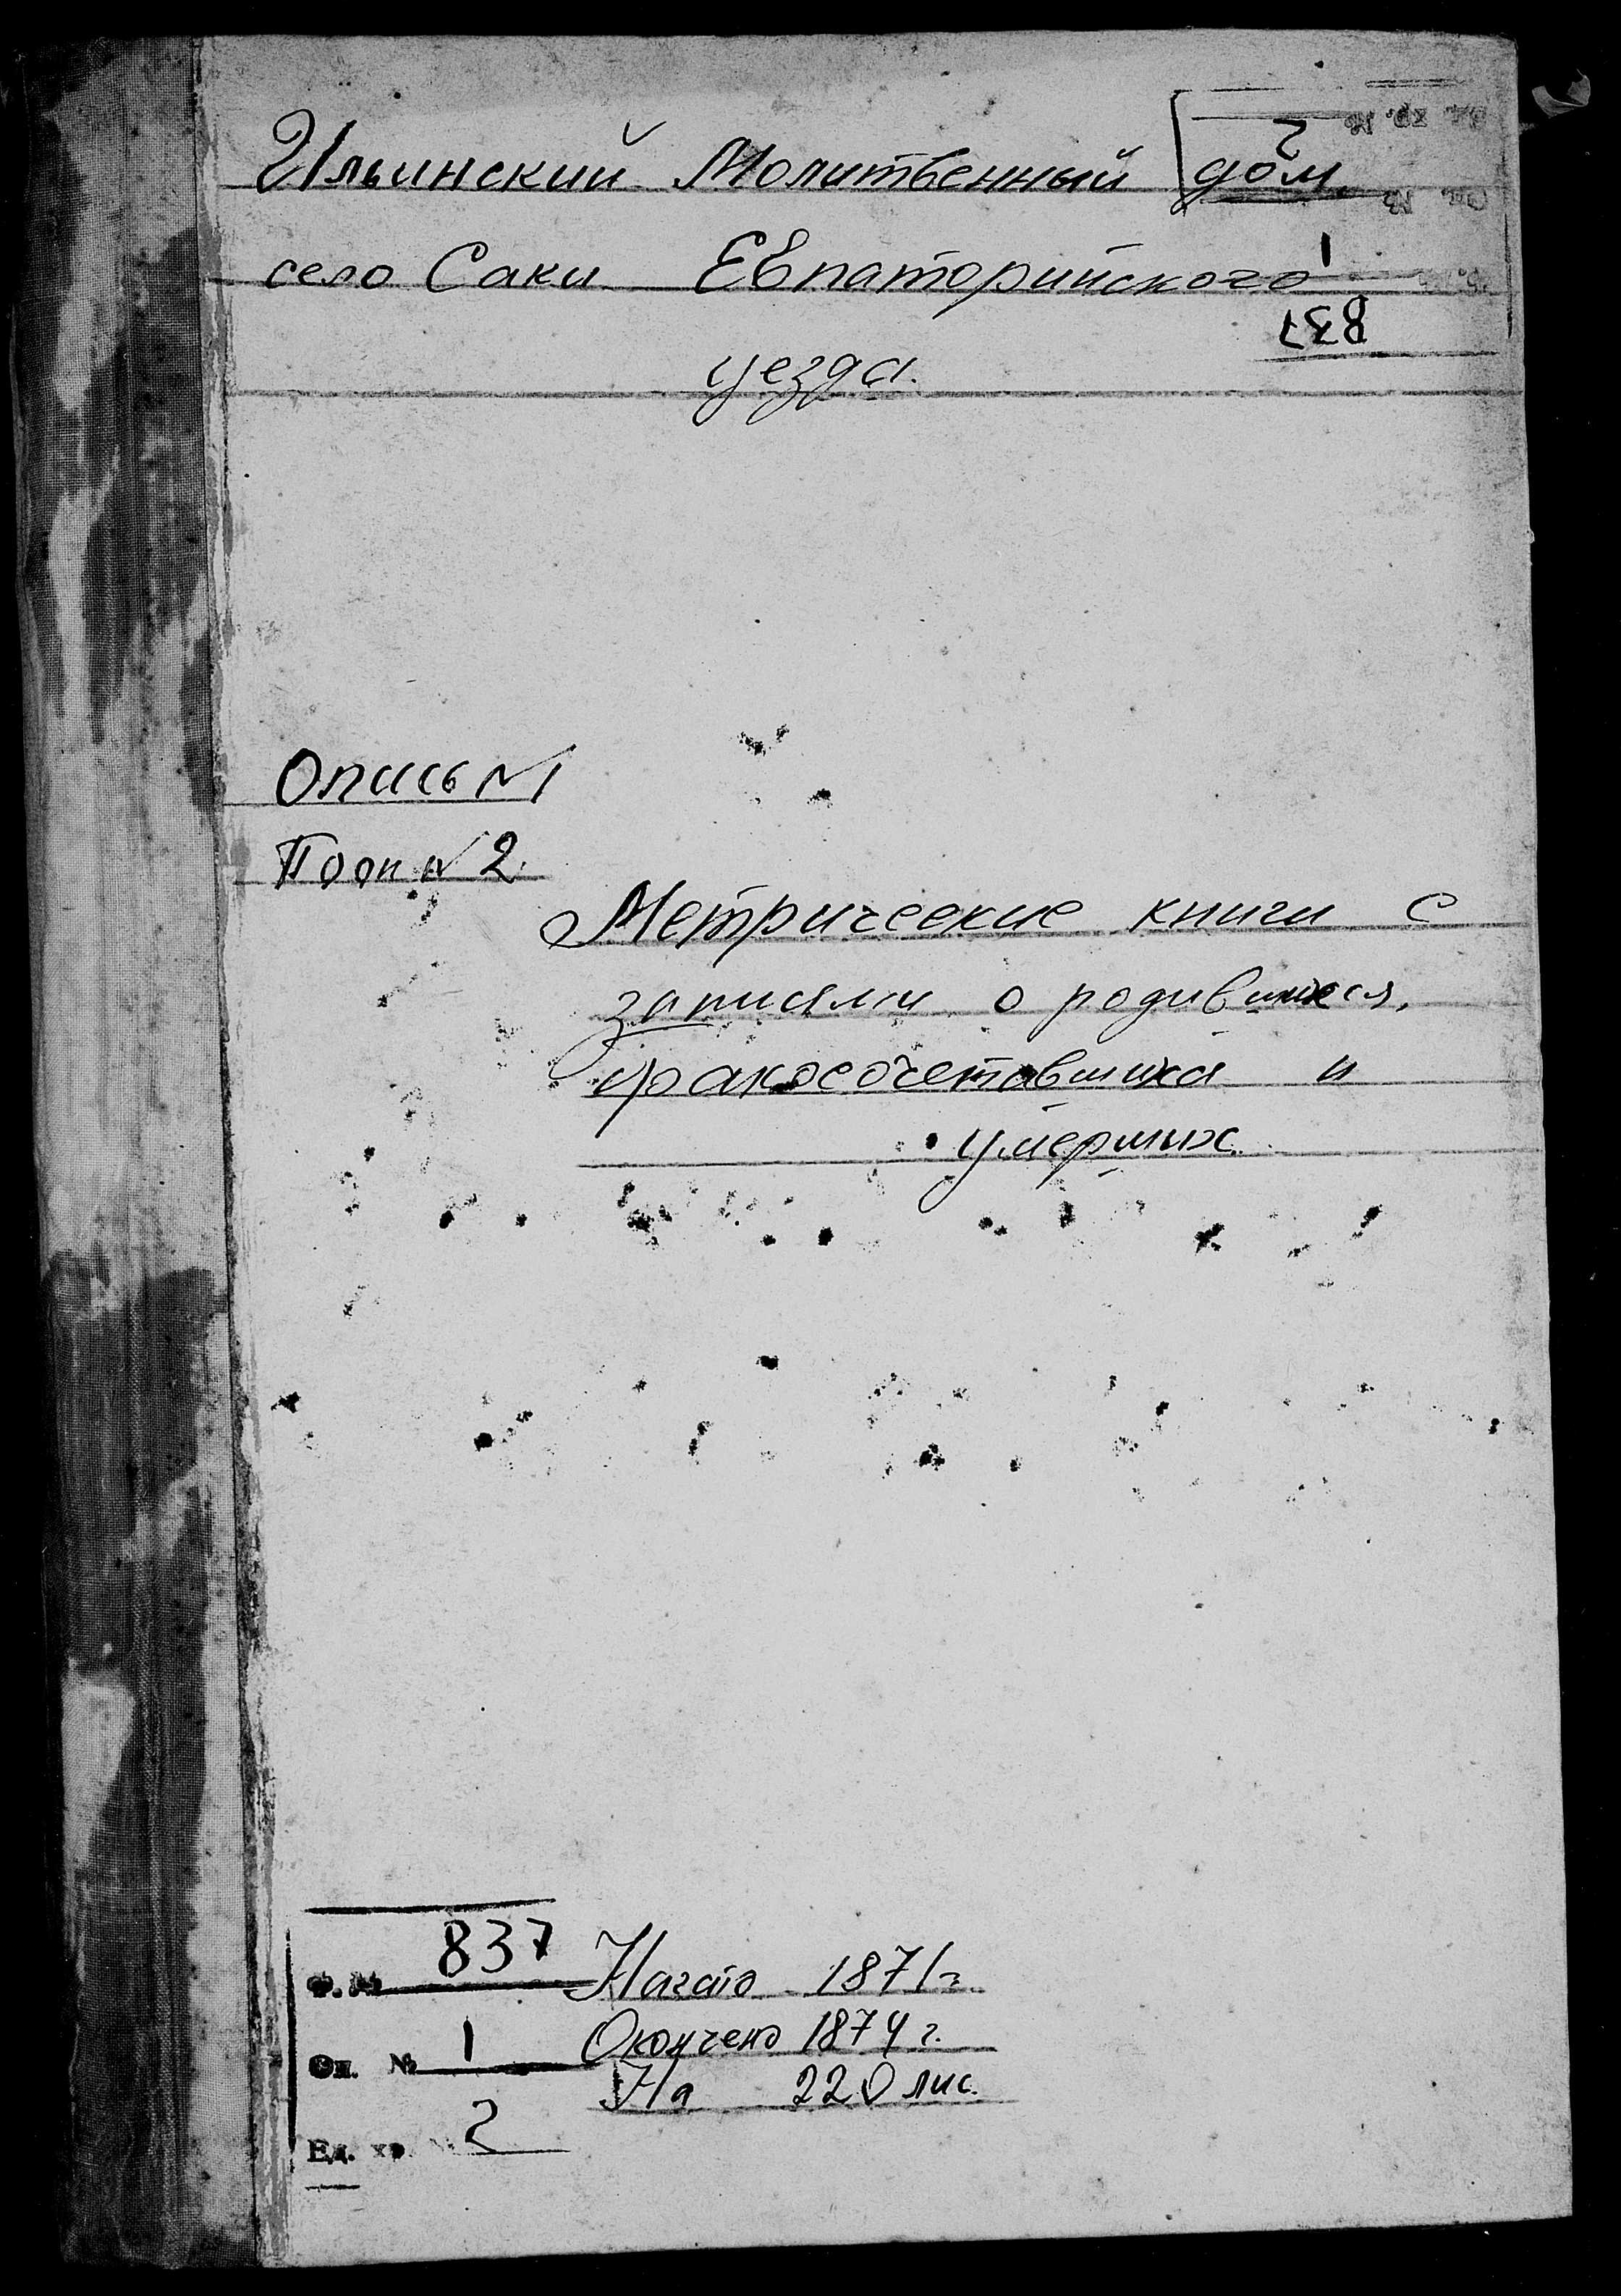 Ильинский Молитвенный дом
село Саки Евпаторийского
уезда.
Ед. хр. № 2
Оп. № 1
837
Опись №1
По оп №2
Метрические книги с
записями о родившихся,
бракосочетавшихся и
умерших.
Ф. № 837
Оп. № 1
Ед. хр. № 2
Начато 1871 г.
Окончено 1874 г.
На 220 лис.